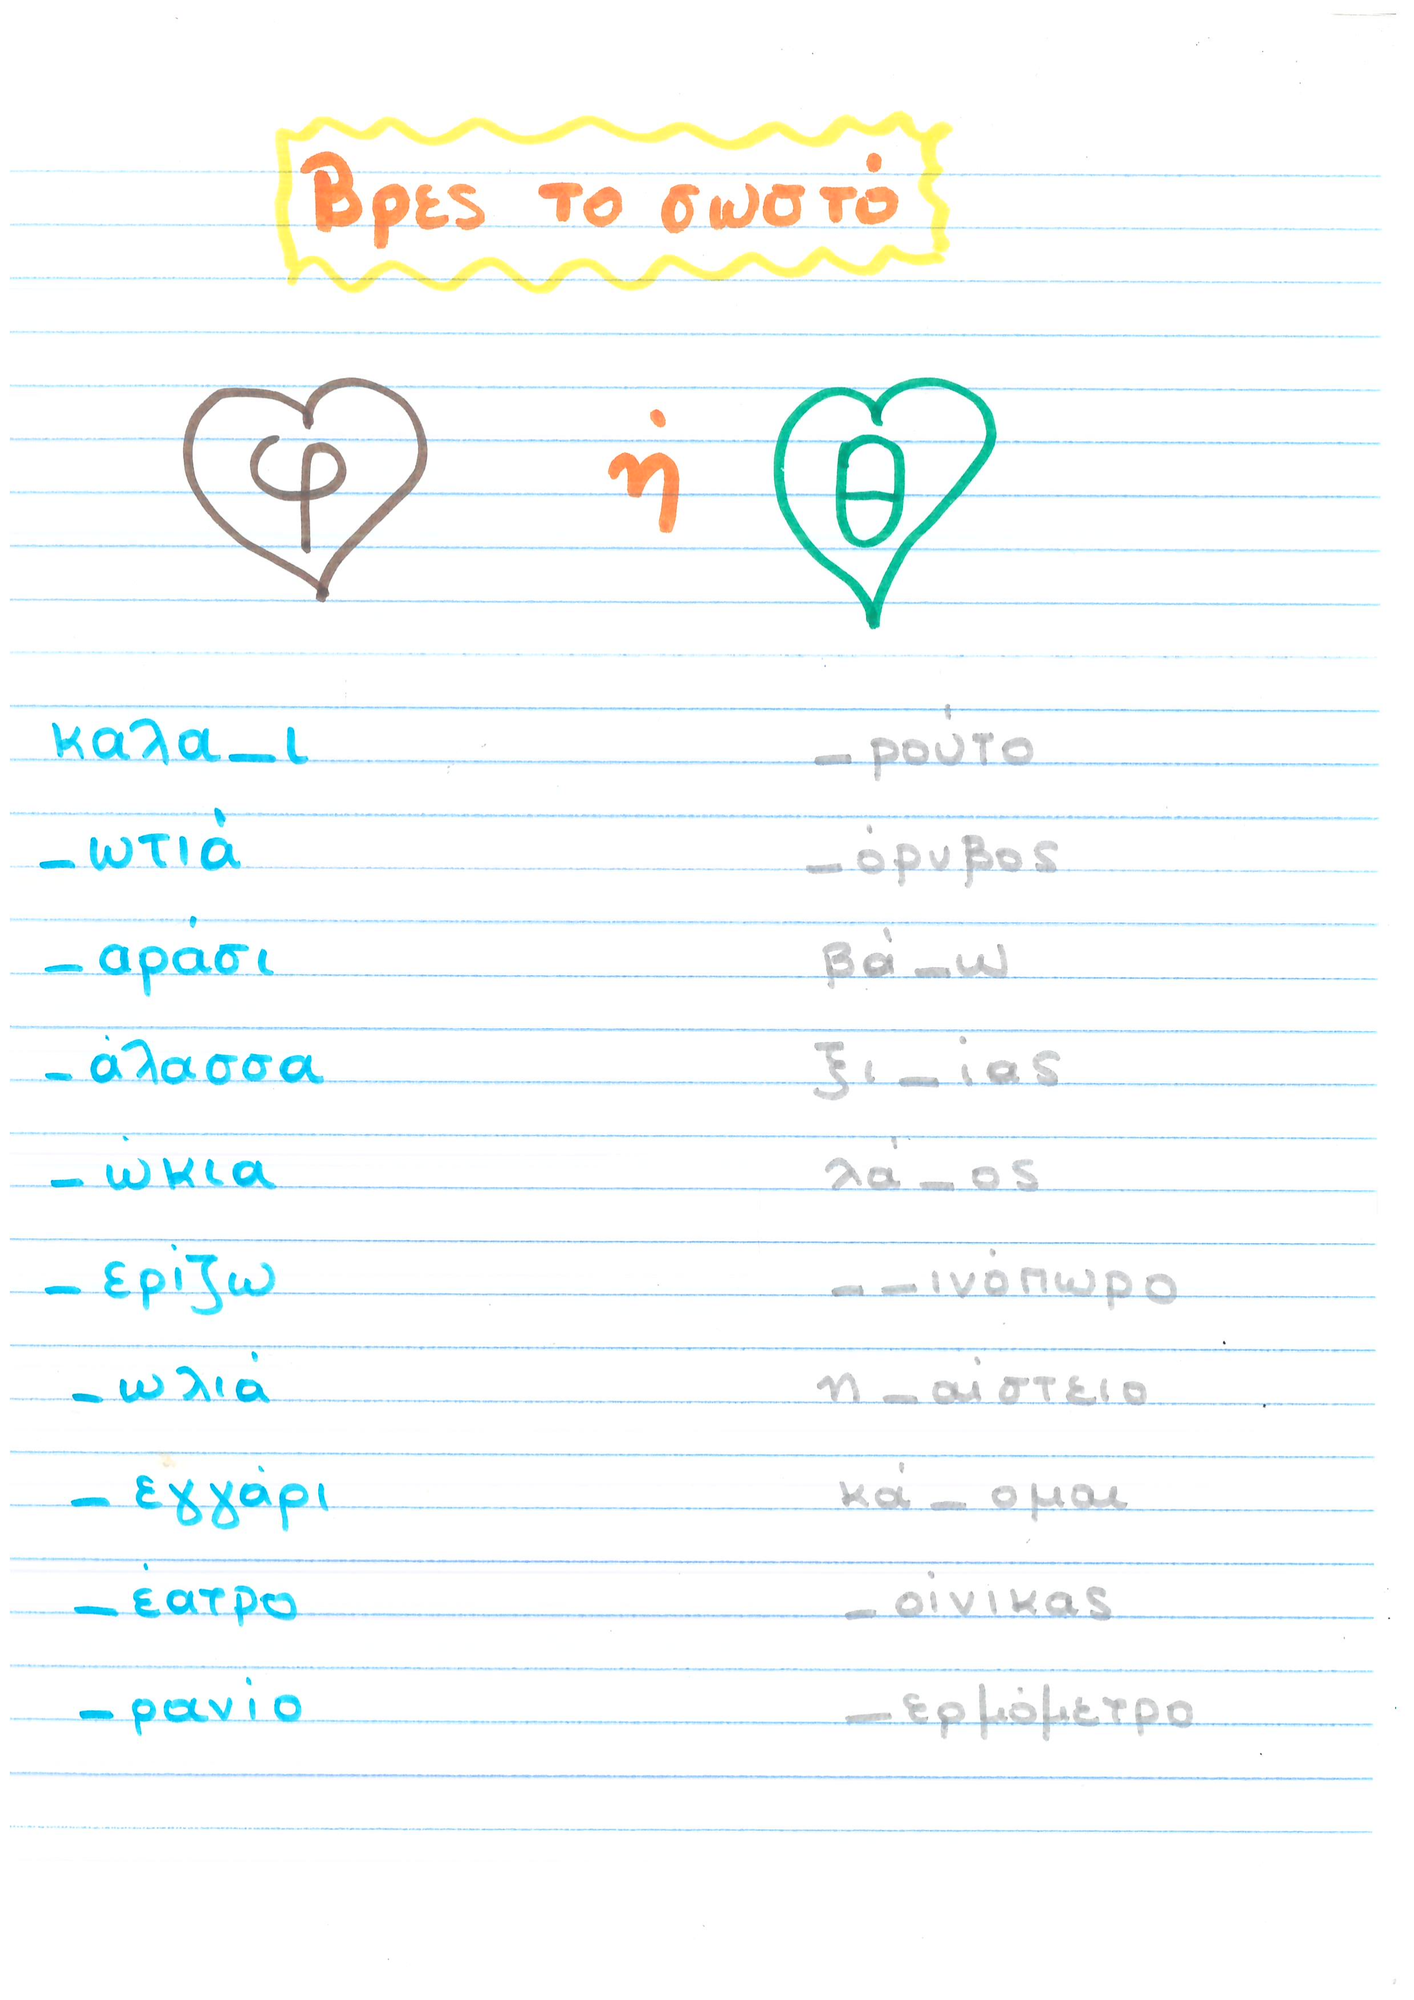 Βρες το σωστό
φ ή θ
καλα_ι _ρούτο
_ωτιά _όρυβος
_αράσι βά_ω
_άλασσα ξι_ίας
_ώκια λά_ος
_ερίζω _ _ινόπωρο
_ωλιά η_αίστειο
_εγγάρι κά_ομαι
_έατρο _οίνικας
_ρανίο _ερμόμετρο